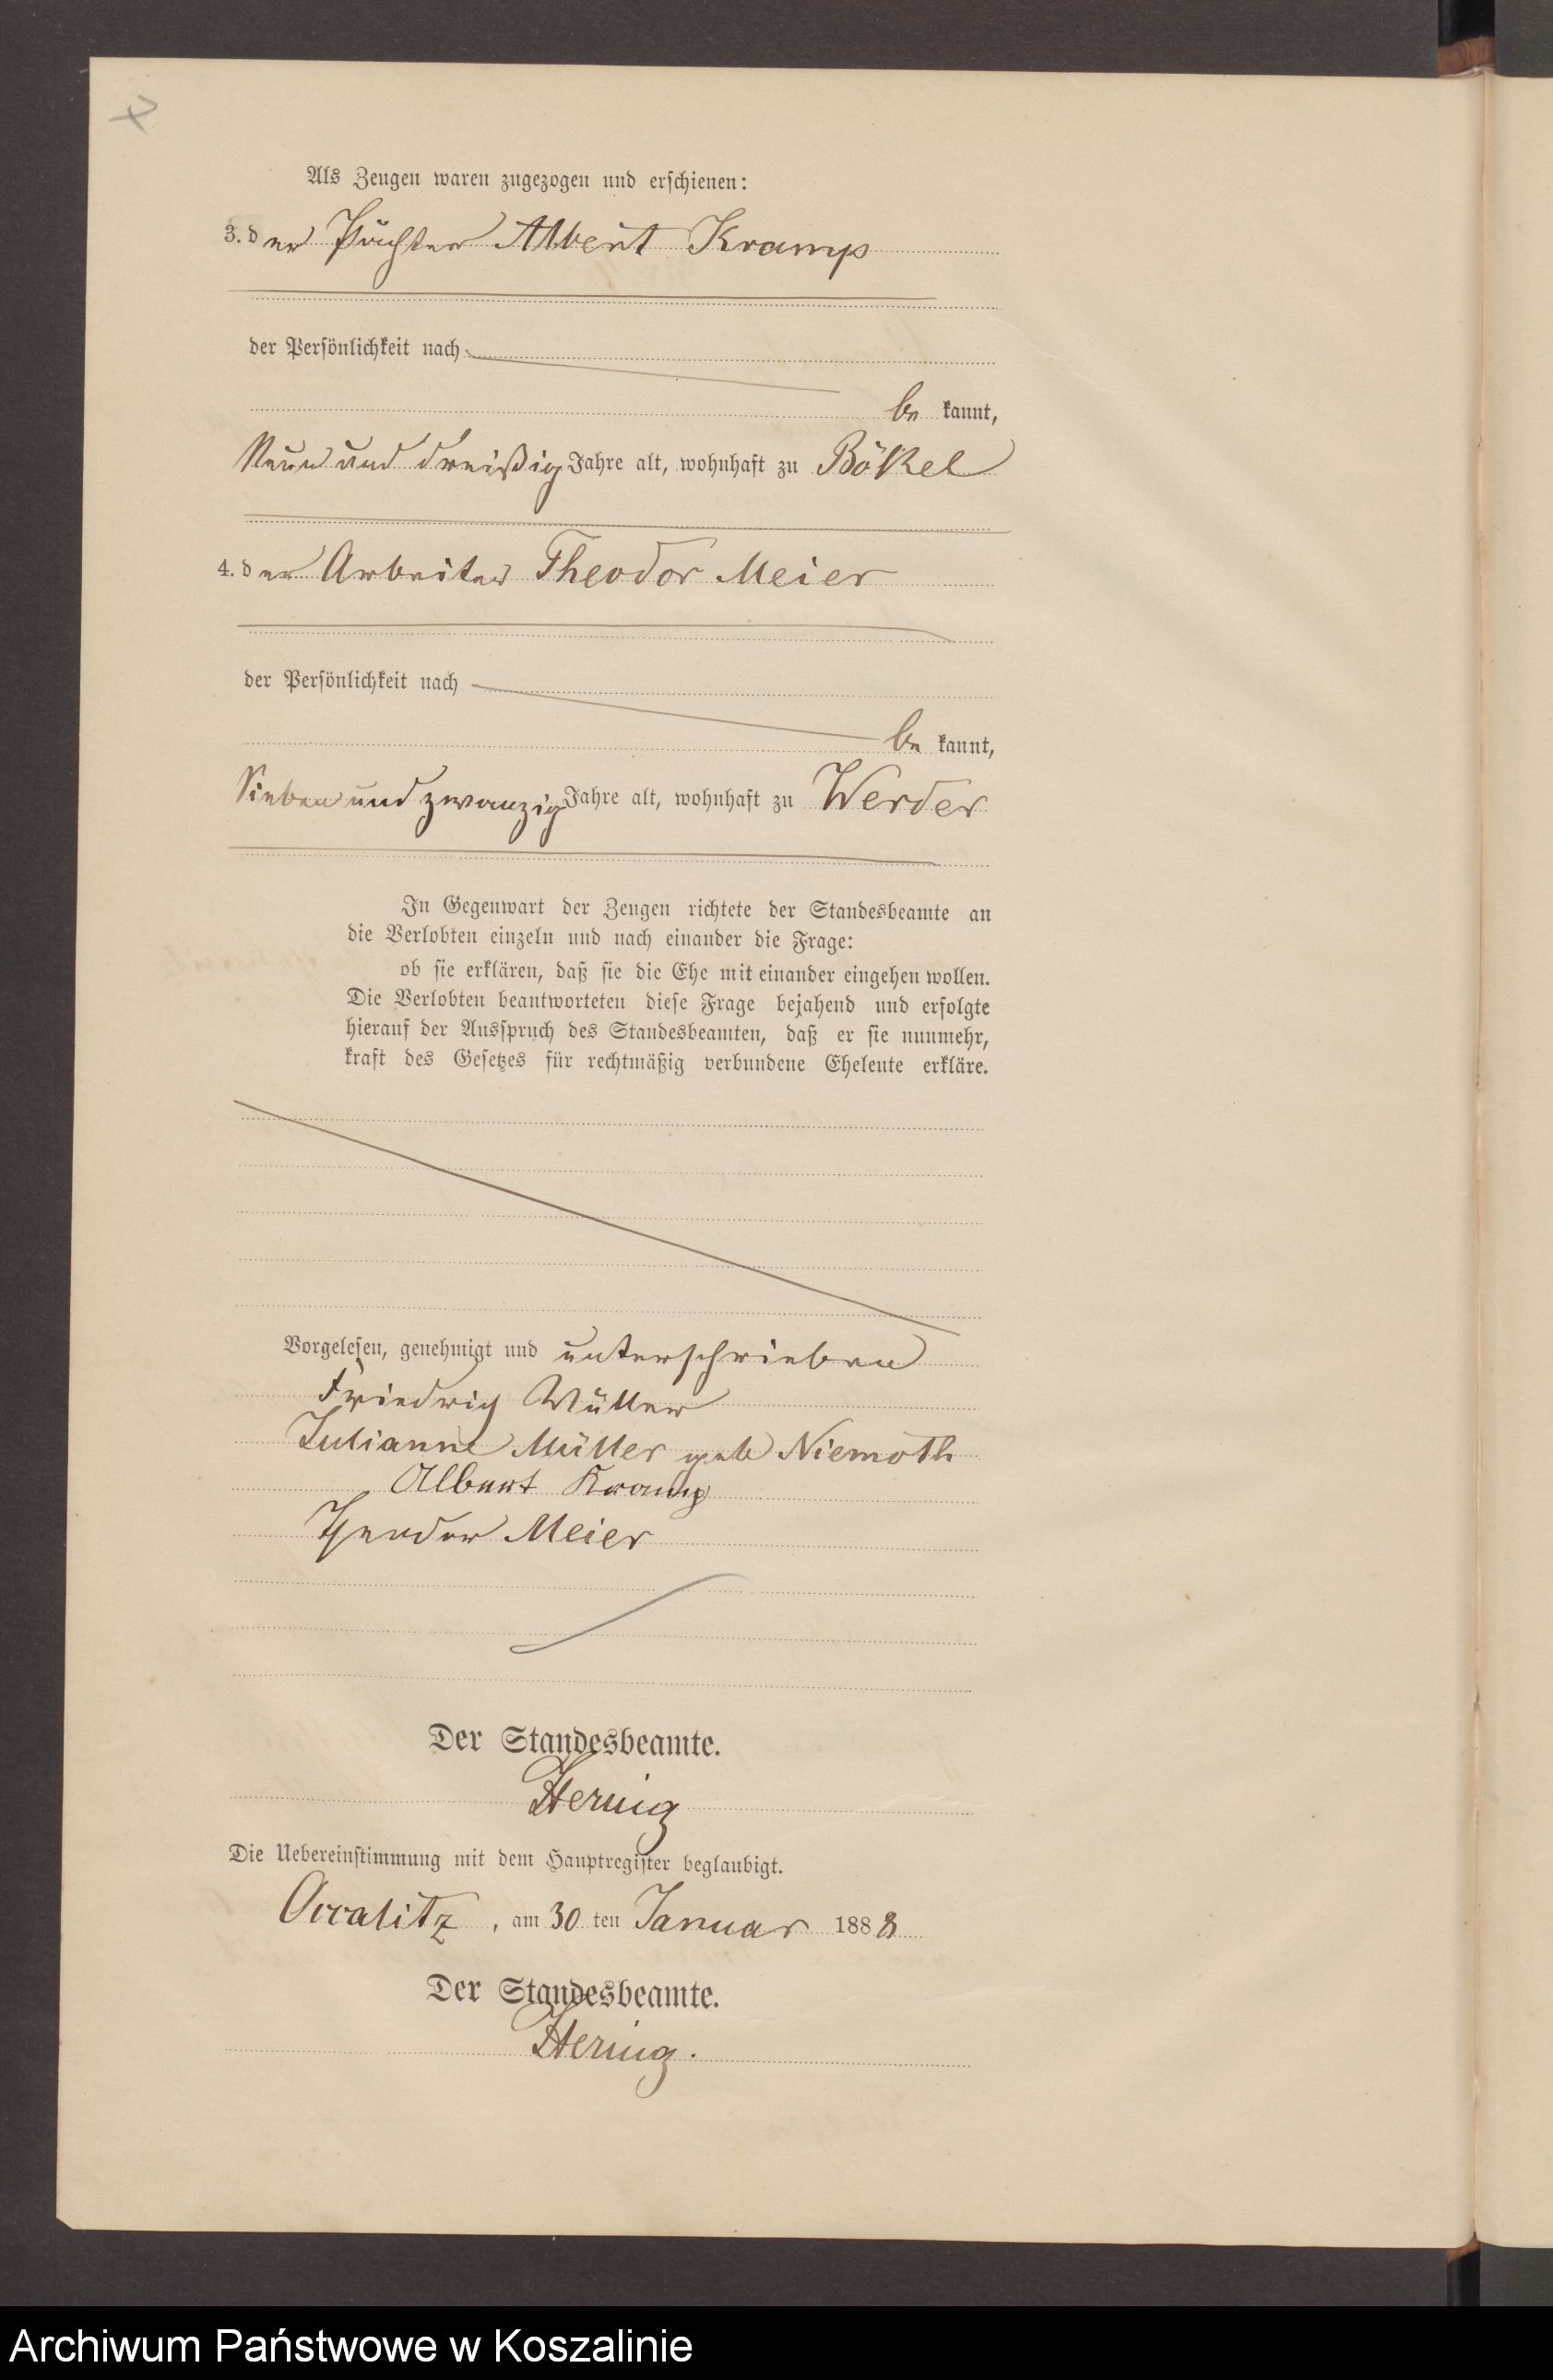 Als Zeugen waren zugezogen und erschienen:
3. der Pächter Albert Kramp
der Persönlichkeit nach
be kannt,
Neun und dreißig Jahre alt, wohnhaft zu Bökel
4. der Arbeiter Theodor Meier
der Persönlichkeit nach
be kannt,
Sieben und zwanzig Jahre alt, wohnhaft zu Werder
In Gegenwart der Zeugen richtete der Standesbeamte an
die Verlobten einzeln und nach einander die Frage:
ob sie erklären, daß sie die Ehe mit einander eingehen wollen.
Die Verlobten beantworteten diese Frage bejahend und erfolgte
hierauf der Ausspruch des Standesbeamten, daß er sie nunmehr,
kraft des Gesetzes für rechtmäßig verbundene Eheleute erkläre.
Vorgelesen, genehmigt und unterschrieben
Friedrich Müller
Julianne Müller geb Niemoth
Albert Kramp
Theodor Meier
Der Standesbeamte.
Hering
Die Uebereinstimmung mit dem Hauptregister beglaubigt.
Occalitz, am 30 ten Januar 1888
Der Standesbeamte.
Hering.
Archiwum Państwowe w Koszalinie